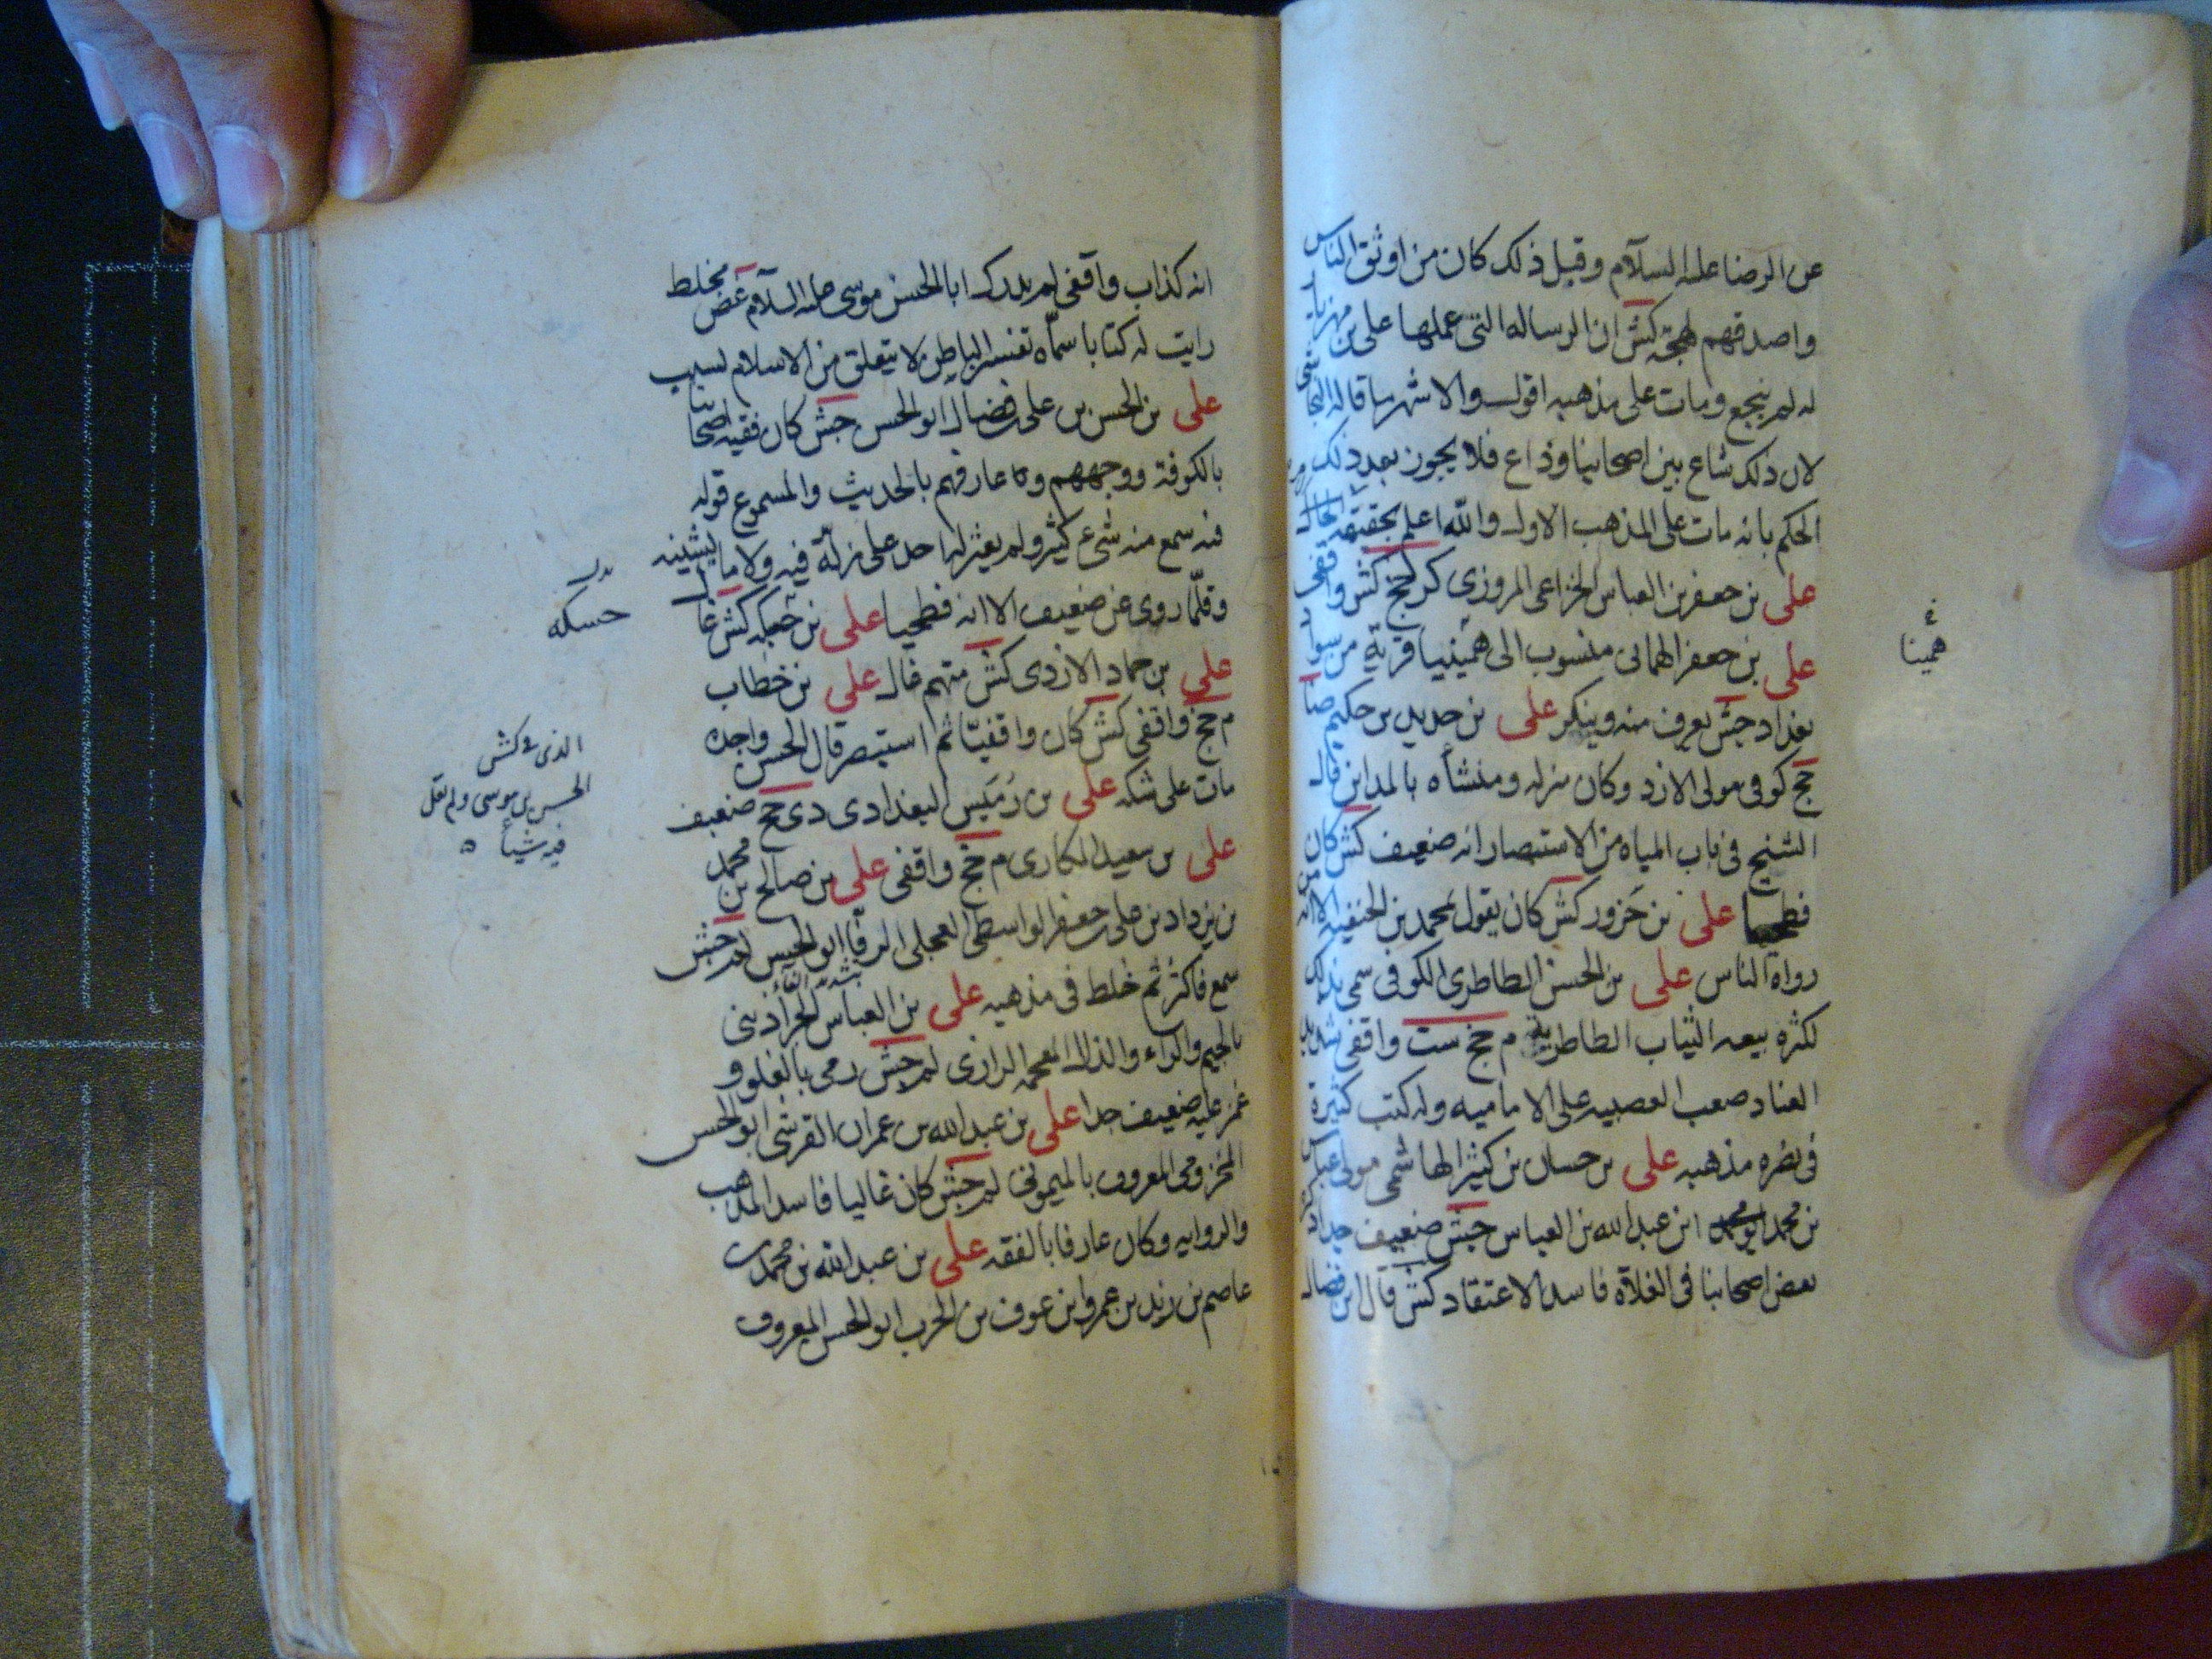 عن الرضا عليه السلام وقبل ذلك كان من اوثق الناس
واصدقهم لهجة كش ان الرساله التى عملها على بن مهزيار
له لم ينجع ومات على مذهبه اقول والاشهر ما قاله النجاشى
لان ذلك شاع بين اصحابنا وذاع فلا يجوز بعد ذلك
الحكم بانه مات على المذهب الاول والله اعلم بحقيقة الحال
على بن جعفر بن العباس الخزاعى المروزى كر جخ كش واقفى
على بن جعفر الهمانى منسوب الى همينيا قرية من سواد
بغداد جش يعرف منه وينكر على بن حديد بن حكيم ضا
جخ كوفى مولى الازد وكان منزله ومنشأه بالمداين قال
الشيخ فى باب المياه من الاستبصار انه ضعيف كش كان
فطحيا على بن حزور كش كان يقول بمحمد بن الحنفيه الا انه من
رواة الناس على بن الحسن الطاطرى الكوفى سمى بذلك
لكثره بيعه الثياب الطاطرية م جخ ست واقفى شديد
العناد صعب العصبيه على الاماميه وله كتب كثيرة
فى نصره مذهبه على بن حسان بن كثير الهاشمى مولى عباس
بن محمد ابن عبد الله بن العباس جش ضعيف جدا ذكره
بعض اصحابنا فى الغلاة فاسد الاعتقاد كش قال ابن فضال
همينا
انه كذاب واقفى لم يدرك ابا الحسن موسى عليه السلام غض مخلط
رايت له كتابا سماه تفسير الباطن لا يتعلق من الاسلام بسبب
على بن الحسن بن على فضال ابو الحسن جش كان فقيه اصحابنا
بالكوفة ووجههم وعارفهم بالحديث والمسموع قوله
فيه سمع منه شئ كثير ولم يعثر له احد على زلة فيه ولا ما يشينه
وقلما روى عن ضعيف الا انه فطحيا على بن حسكه كش غال
على بن حماد الازدى كش متهم قال على بن خطاب
م جخ واقفى كش كان واقفيا ثم استبصر قال الحسن واجده
مات على شكه على بن رميس البغدادى دى جخ ضعيف
على بن سعيد المكارى م جخ واقفى على بن صالح بن محمد
بن يزداد بن على بن جعفر الواسطى العجلى الرفا ابو الحسن لم جش
سمع فاكثر ثم خلط فى مذهبه على بن العباس الجراذينى
بالجيم والراء والذال المعجمه الرازى لم جش رمى بالغلو و
غمز عليه ضعيف جدا على بن عبد الله بن عمران القرشى ابو الحسن
المخزومى المعروف بالميمونى لم جش كان غاليا فاسد المذهب
والروايه وكان عارفا بالفقه على بن عبد الله بن محمد بن
عاصم بن زيد بن عمرو ابن عوف بن الحرب ابو الحسن المعروف
حسكه
الذى فى كش
الحسن بن موسى ولم يقل
فيه شيئا